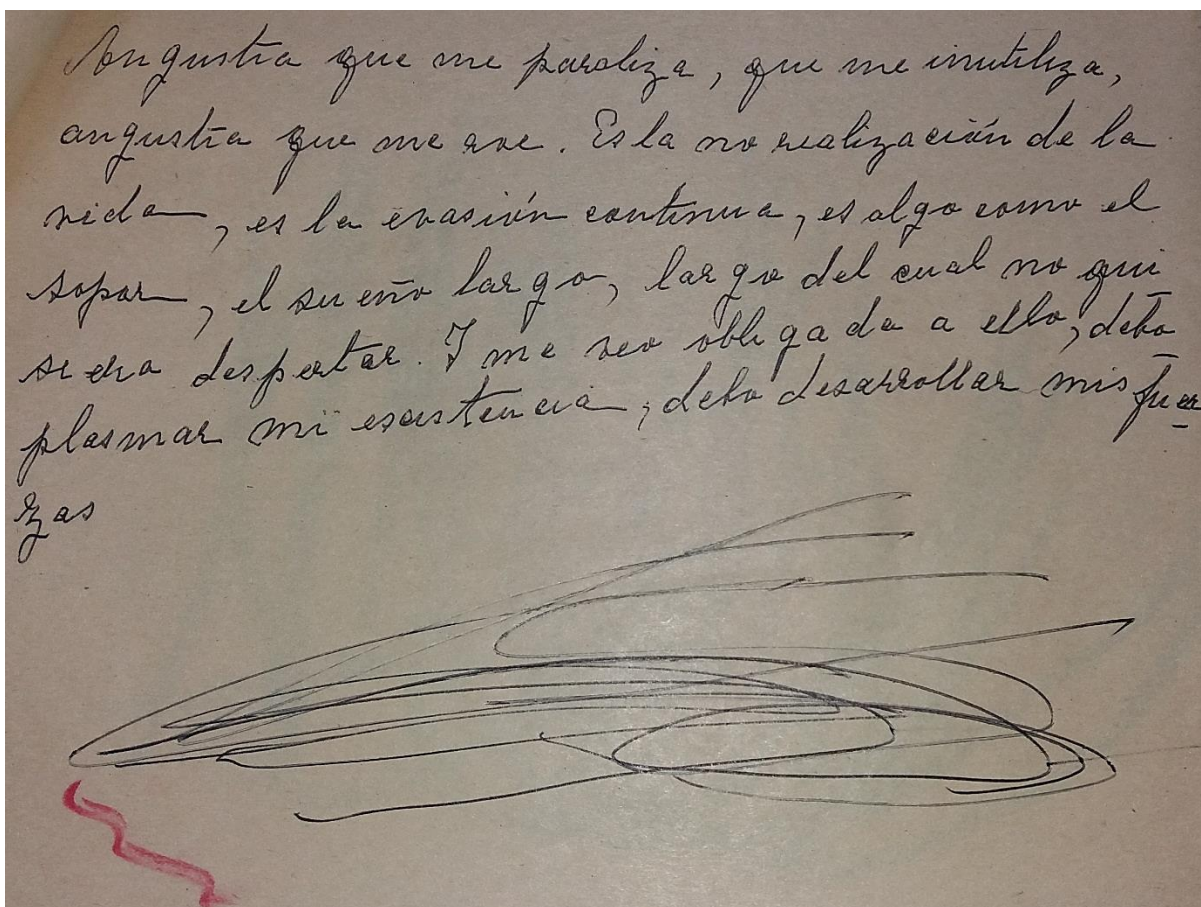 Angustia que me paraliza, que me inutiliza,
angustia que me roe. Es la no realización de la
vida, es la evasión continua, es algo como el
sopor, el sueño largo, largo del cual no qui
siera despertar. Y me veo obligada a ello, debo
plasmar mi existencia, debo desarrollar mis fuer
zas